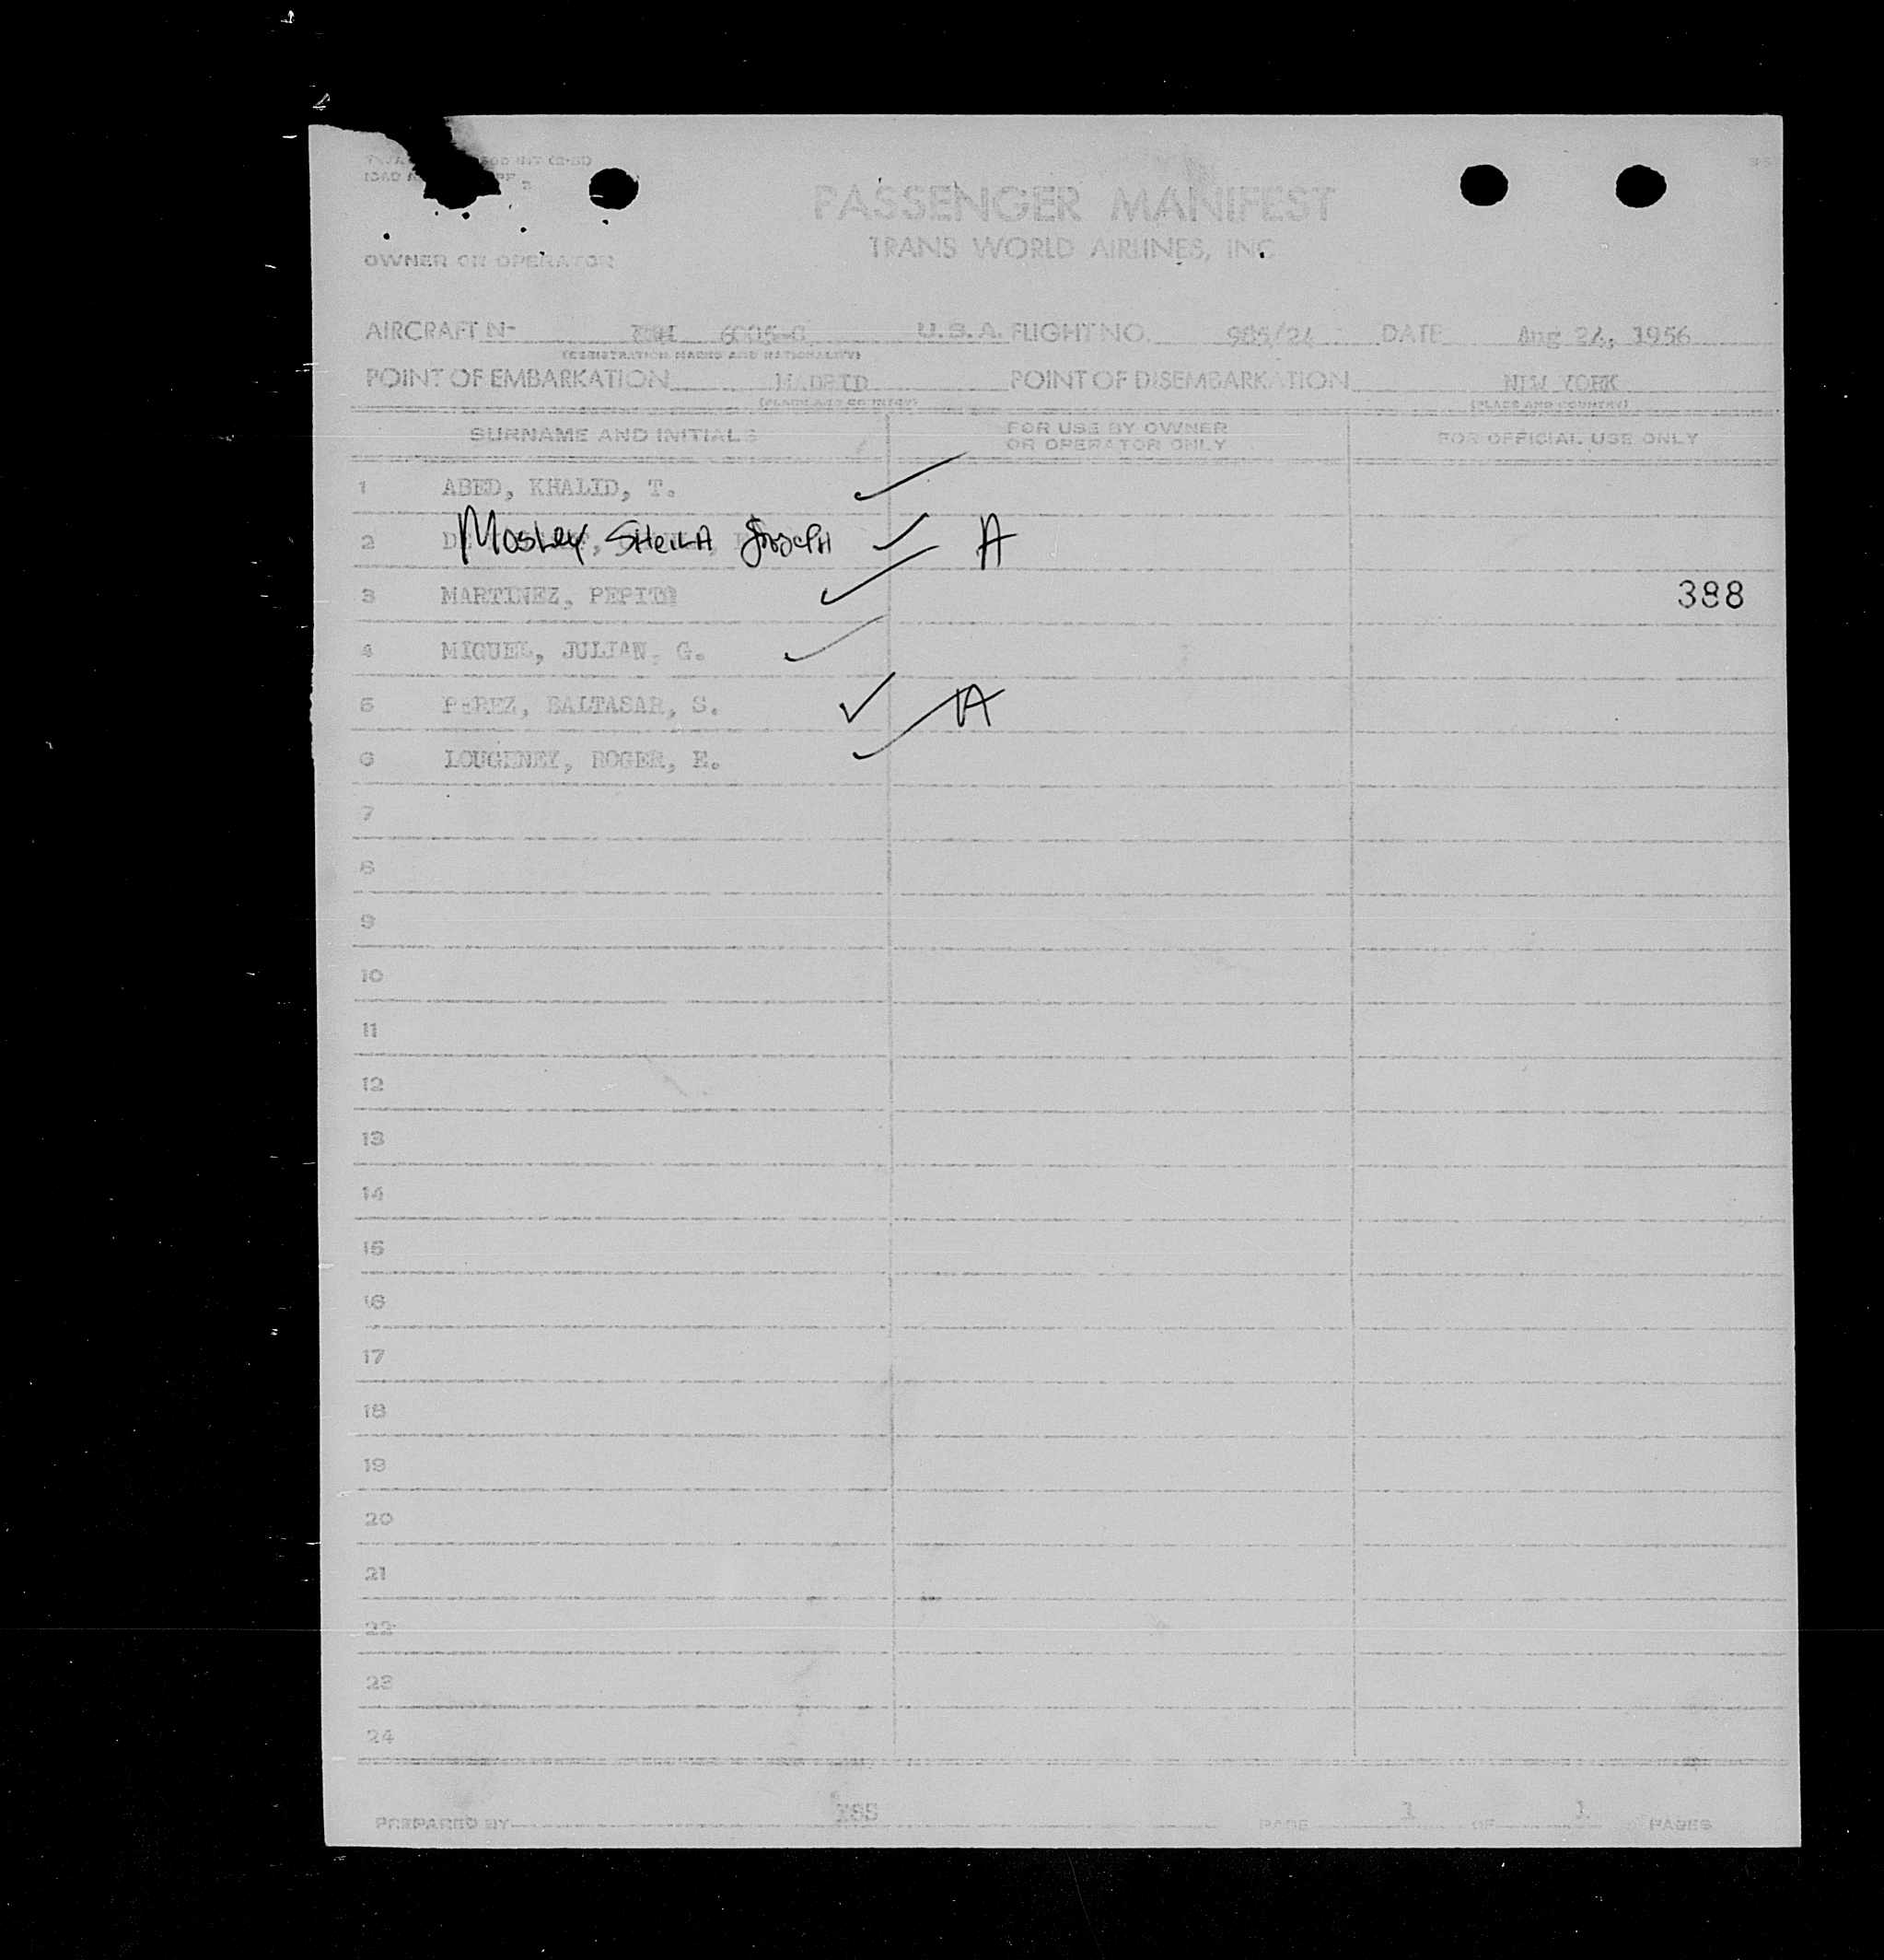 PASSENGER MANIFEST
TRANS WORLD AIRLINES, INC.
OWNER OR OPERATOR
AIRCRAFT N- 6005-C U.S.A. FLIGHT NO. 905/24 DATE Aug 24, 1956
(REGISTRATION MARKS AND NATIONALITY)
POINT OF EMBARKATION MADRID POINT OF DISEMBARKATION NEW YORK
(PLACE AND COUNTRY) (PLACE AND COUNTRY)
SURNAME AND INITIALS FOR USE BY OWNER OR OPERATOR ONLY FOR OFFICIAL USE ONLY
1 ABED, KHALID, T. ✓
2 Mosley SHEILA ✓ A
3 MARTINEZ, PEPITO ✓ 388
4 MIGUEL, JULIAN, G. ✓
5 PEREZ, BALTASAR, S. ✓ A
6 LOUGHNEY, ROGER, E. ✓
7
8
9
10
11
12
13
14
15
16
17
18
19
20
21
22
23
24
PREPARED BY PAGE 1 OF 1 PAGES